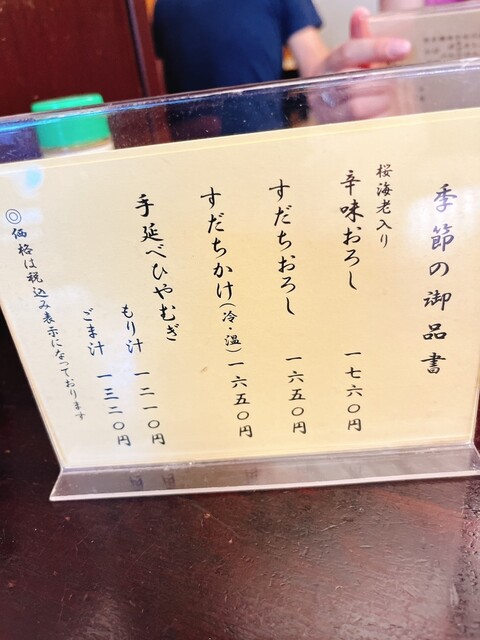 季節の御品書
桜海老入り
辛味おろし 一七六〇円
すだちおろし 一六五〇円
すだちかけ(冷・温) 一六五〇円
手延べひやむぎ
もり汁 一二一〇円
ごま汁 一三二〇円
◎価格は税込み表示になっております